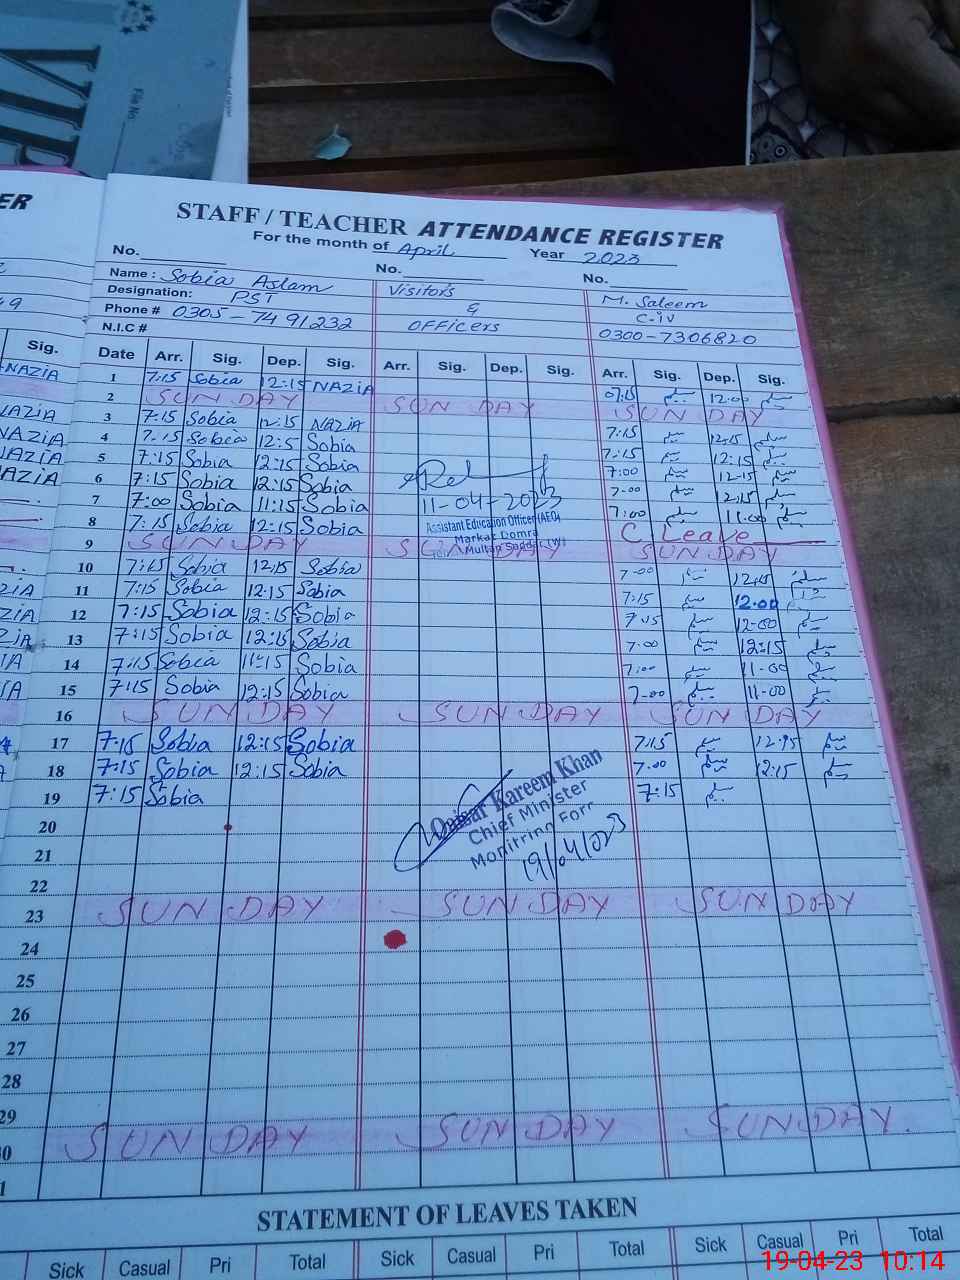 File No
ER
STAFF / TEACHER ATTENDANCE REGISTER
For the month of April Year 2023
No. No. No.
Name : Sobia Aslam Visitors M. Saleem
Designation: PST & C-iv
Phone # 0305-7491232 OFFicers 0300-7306820
N.I.C #
Sig. Date Arr. Sig. Dep. Sig. Arr. Sig. Dep. Sig. Arr. Sig. Dep. Sig.
NAZIA 1 7:15 Sobia 12:15 NAZIA 07:15 سلیم 12:00 سلیم
2 SUNDAY SUN DAY SUN DAY
NAZIA 3 7:15 Sobia 12:15 NAZIA 7:15 سلیم 12:15 سلیم
NAZIA 4 7:15 Sobia 12:5 Sobia 7:15 سلیم 12:15 سلیم
NAZIA 5 7:15 Sobia 12:15 Sobia 7:00 سلیم 12-15 سلیم
NAZIA 6 7:15 Sobia 12:15 Sobia 7-00 سلیم 12:15 سلیم
7 7:00 Sobia 11:15 Sobia 11-04-2023 7:00 سلیم 11:00 سلیم
8 7:15 Sobia 12:15 Sobia Assistant Education Officer (AEO) C. Leave
Markaz Domra
9 SUNDAY SUN DAY SUN DAY
Multan Saddar (W)
10 7:15 Sobia 12:15 Sobia 7-00 سلیم 12:15 سلیم
ZIA 11 7:15 Sobia 12:15 Sobia 7:15 سلیم 12:00
ZIA 12 7:15 Sobia 12:15 Sobia 7:15 سلیم 12:00 سلیم
ZIA 13 7:15 Sobia 12:15 Sobia 7:00 سلیم 12:15 سلیم
IA 14 7:15 Sobia 11:15 Sobia 7:00 سلیم 11-00 سلیم
IA 15 7:15 Sobia 12:15 Sobia 7-00 سلیم 11-00 سلیم
16 SUN DAY SUN DAY SUN DAY
17 7:15 Sobia 12:15 Sobia 7:15 سلیم 12:15 سلیم
18 7:15 Sobia 12:15 Sobia 7:00 سلیم 12:15 سلیم
19 7:15 Sobia 7:15 سلیم
Qaisar Kareem Khan
Chief Minister
Monitrinn Forr
19/04/023
20
21
22
23 SUN DAY SUN DAY SUN DAY
24
25
26
27
28
29
30 SUN DAY SUN DAY SUN DAY
1
STATEMENT OF LEAVES TAKEN
Sick Casual Pri Total Sick Casual Pri Total Sick Casual Pri Total
19-04-23 10:14